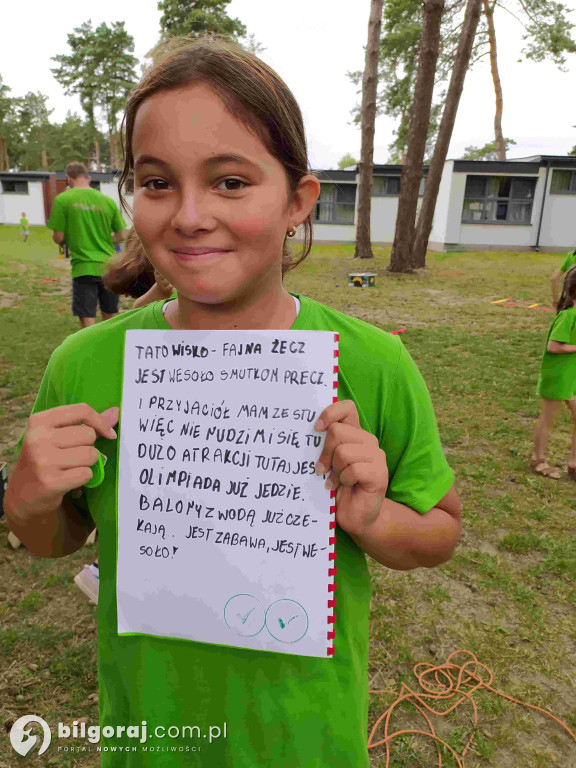 TATOWISKO - FAJNA ŻECZ
JEST WESOŁO SMUTKOM PRECZ.
I PRZYJACIÓŁ MAM ZE STU
WIĘC NIE NUDZI MI SIĘ TU
DUŻO ATRAKCJI TUTAJ JEST
OLIMPIADA JUŻ JEDZIE.
BALONY Z WODĄ JUŻ CZE-
KAJĄ. JEST ZABAWA, JEST WE-
SOŁO!
bilgoraj.com.pl
PORTAL NOWYCH MOŻLIWOŚCI